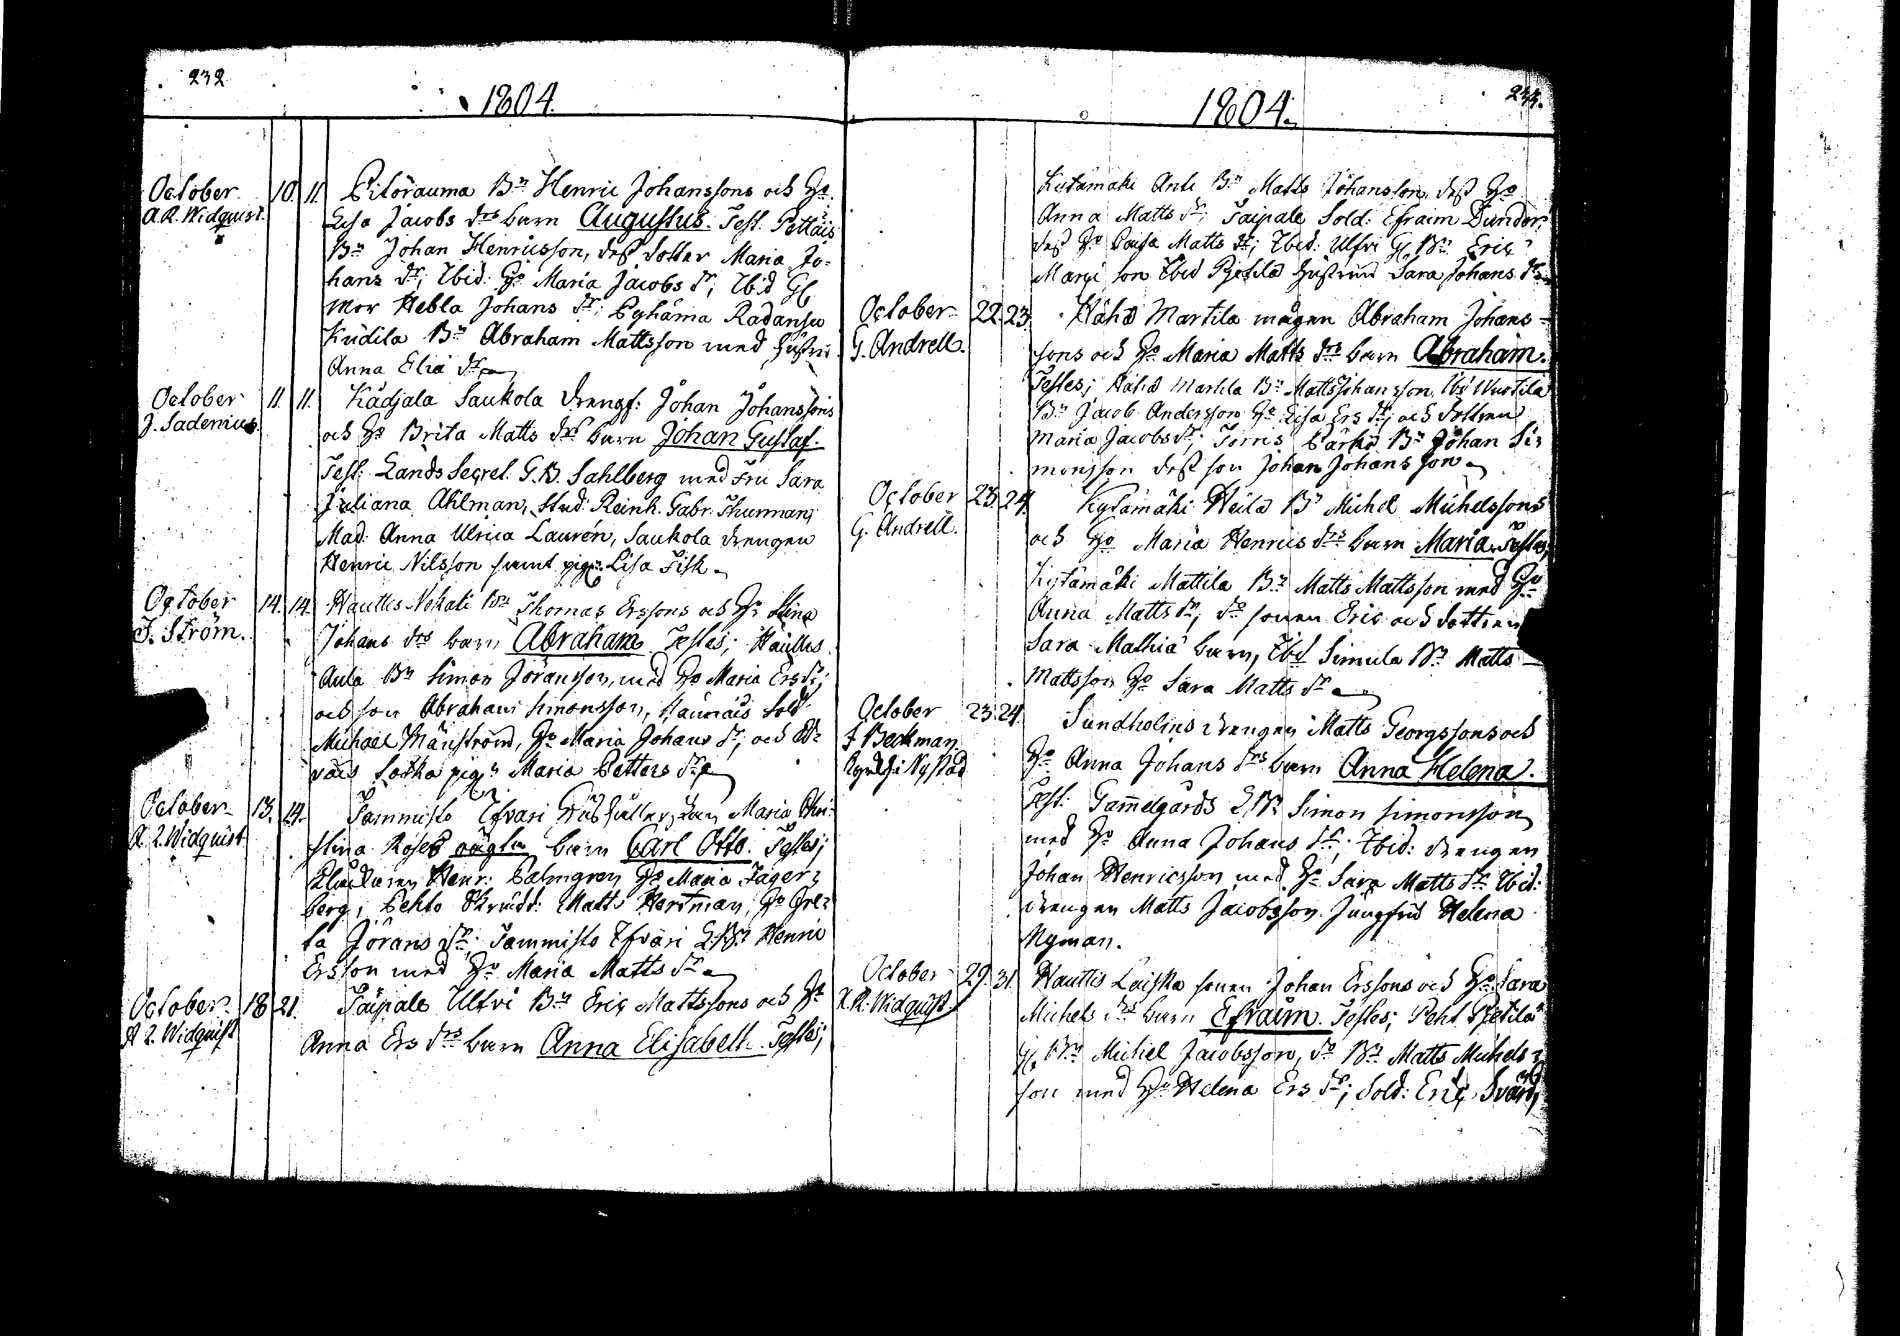 232
1804.
October 10. 11. Pitorauma Bn Henric Johanssons och Ho
A. R. Widquist. Lisa Jacobs drs barn Augustus. Test. Pettäis
Bn Johan Henricsson, dess dotter Maria Jo-
hans dr; Ibid. Ho Maria Jacobs dr; Ibid Gl
mor Hebla Johans dr; Pyhäma Radansu
Kudila Bn Abraham Mattsson med hustru
Anna Elia dr
October 11. 11. Kädjala Saukola drengs: Johan Johanssons
J. Sadenius. och Ho Brita Matts drs barn Johan Gustaf.
Test. Lands Secret. G. B. Sahlberg med Fru Sara
Juliana Ahlman, Stud: Reinh. Gabr. Thurman;
Mad. Anna Ulrica Laurén, Saukola drengen
Henric Nilsson samt pig: Lisa Fisk
October 14. 14. Hauttis Nohati Bn Thomas Erssons och Ho Stina
J. Ström. Johans drs barn Abraham. Testes; Hauttis
Aula Bn Simon Jöransson, med Ho Maria Ers dr;
och son Abraham Simonsson, Haunais Sold
Michael Mänström, Ho Maria Johans dr; och
vais Laska pign Maria Petters dr
October 13. 14. Tammisto Ifvari Maria Chri-
A. R. Widquist stina Roses oägta barn Carl Otto. Testes;
Henr: Palmgren Ho Maria Jäger-
berg; Pehto Skrädd: Matts Hertman, Ho Gre-
ta Jörans dr; Tammisto Ifvari Bn Henric
Ersson med Ho Maria Matts dr
October 18 21. Taipale Ulfvi Bn Eric Mattssons och Ho
A. R. Widquist Anna Ers drs barn Anna Elisabeth. Testes;
233.
1804.
Kytämäki Anti Bn Matts Johansson, dess Ho
Anna Matts dr; Taipale Sold: Efraim Dunder;
dess Ho Caisa Matts dr; Ibid. Ulfvi Gl. Bn Eric
Marci son Ibid Pjetilä hustrun Sara Johans dr
October 22. 23. Hähä Martila mågen Abraham Johans-
G. Andrell. sons och Ho Maria Matts drs barn Abraham.
Testes; Hähä Martila Bn Matts Johansson, Ibid Wurtila
Bn Jacob Andersson Ho Lisa Ers dr; och dottren
Maria Jacobs dr; Torris Pärkö Bn Johan Si-
monsson dess son Johan Johansson
October 23. 24. Kytämäki Heilä Bn Michel Michelssons
G. Andrell. och Ho Maria Henrics drs barn Maria. Testes;
Kytämäki Mattila Bn Matts Mattsson med Ho
Anna Matts dr; do sonen Eric och dottren
Sara Mathiä barn, Ibid Simula Bn Matts
Mattsson Ho Sara Matts dr
October 23. 24. Sundholms drengen Matts Georgssons och
F Beckman Ho Anna Johans drs barn Anna Helena.
i Nystad
Test: Gammelgårds Bn Simon Simonsson
med Ho Anna Johans dr; Ibid: drengen
Johan Henricsson med Ho Sara Matts dr Ibid:
drengen Matts Jacobsson Jungfru Helena
Nyman.
October 29. 31. Hauttis Laiska sonen Johan Erssons och Ho Sara
A. R. Widquist. Michels drs barn Efraim. Testes; Peht. Pjetilä
Gl. Bn Michel Jacobsson, do Bn Matts Michels-
son med Ho Helena Ers dr; Sold: Eric Svärd,